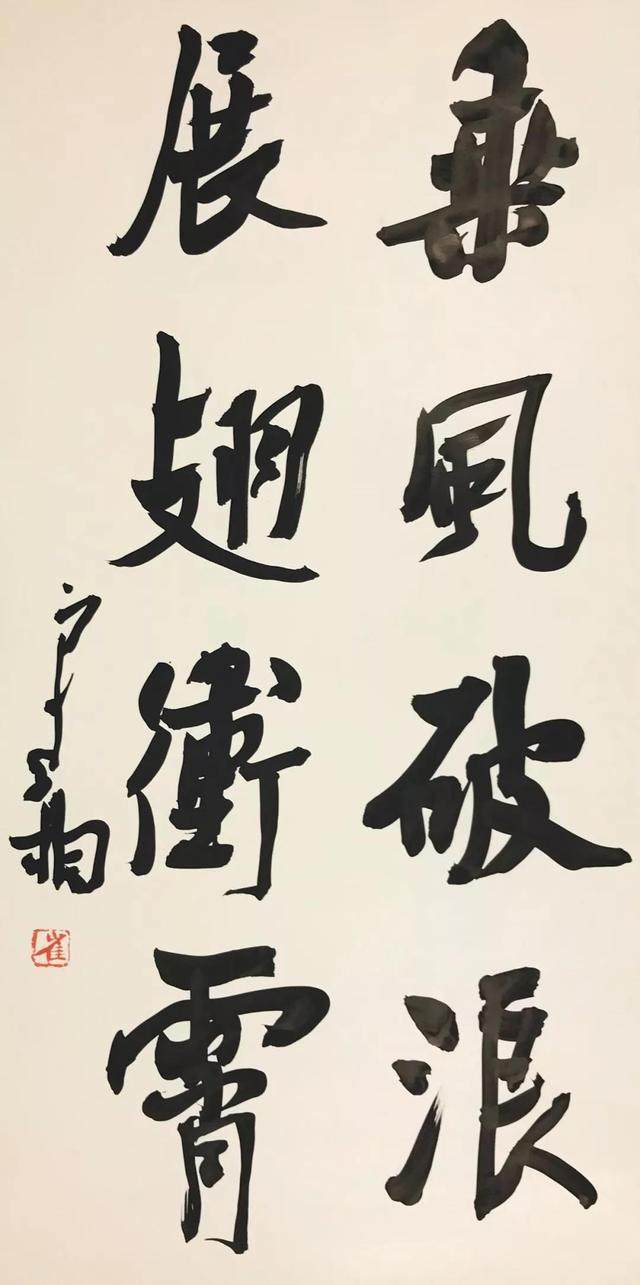 乘風破浪
展翅衝霄
崔